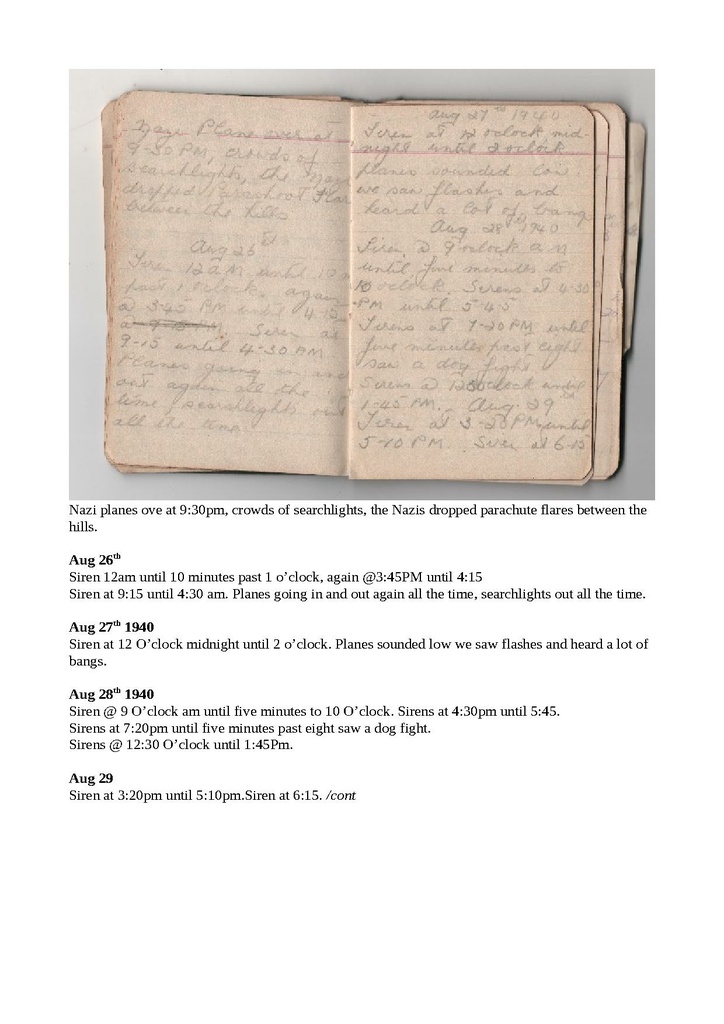 Naze Plane over at
9-30 PM, crowds of
searchlights, the Naze
dropped Parashoot Flar
between the hills
Aug 26
Siren 12 AM until 10
past 1 oclock. again
@ 3-45 PM until 4-15
Siren at
9-15 until 4-30 AM
Planes going in and
out again all the
time, searchlights out
all the time.
Aug 27th 1940
Siren at 12 oclock mid-
night until 2 oclock
planes sounded low
we saw flashes and
heard a lot of bangs
Aug. 28th 1940
Siren @ 9 oclock AM
until five minutes to
10 oclock. Sirens at 4-30
PM until 5-45
Sirens at 7-20 PM until
five minutes past eight
saw a dog fight.
Sirens @ 12 oclock until
1-45 PM. Aug. 29
Siren at 3-20 PM until
5-10 PM. Siren at 6-15
Nazi planes ove at 9:30pm, crowds of searchlights, the Nazis dropped parachute flares between the
hills.
Aug 26th
Siren 12am until 10 minutes past 1 o’clock, again @3:45PM until 4:15
Siren at 9:15 until 4:30 am. Planes going in and out again all the time, searchlights out all the time.
Aug 27th 1940
Siren at 12 O’clock midnight until 2 o’clock. Planes sounded low we saw flashes and heard a lot of
bangs.
Aug 28th 1940
Siren @ 9 O’clock am until five minutes to 10 O’clock. Sirens at 4:30pm until 5:45.
Sirens at 7:20pm until five minutes past eight saw a dog fight.
Sirens @ 12:30 O’clock until 1:45Pm.
Aug 29
Siren at 3:20pm until 5:10pm.Siren at 6:15. /cont